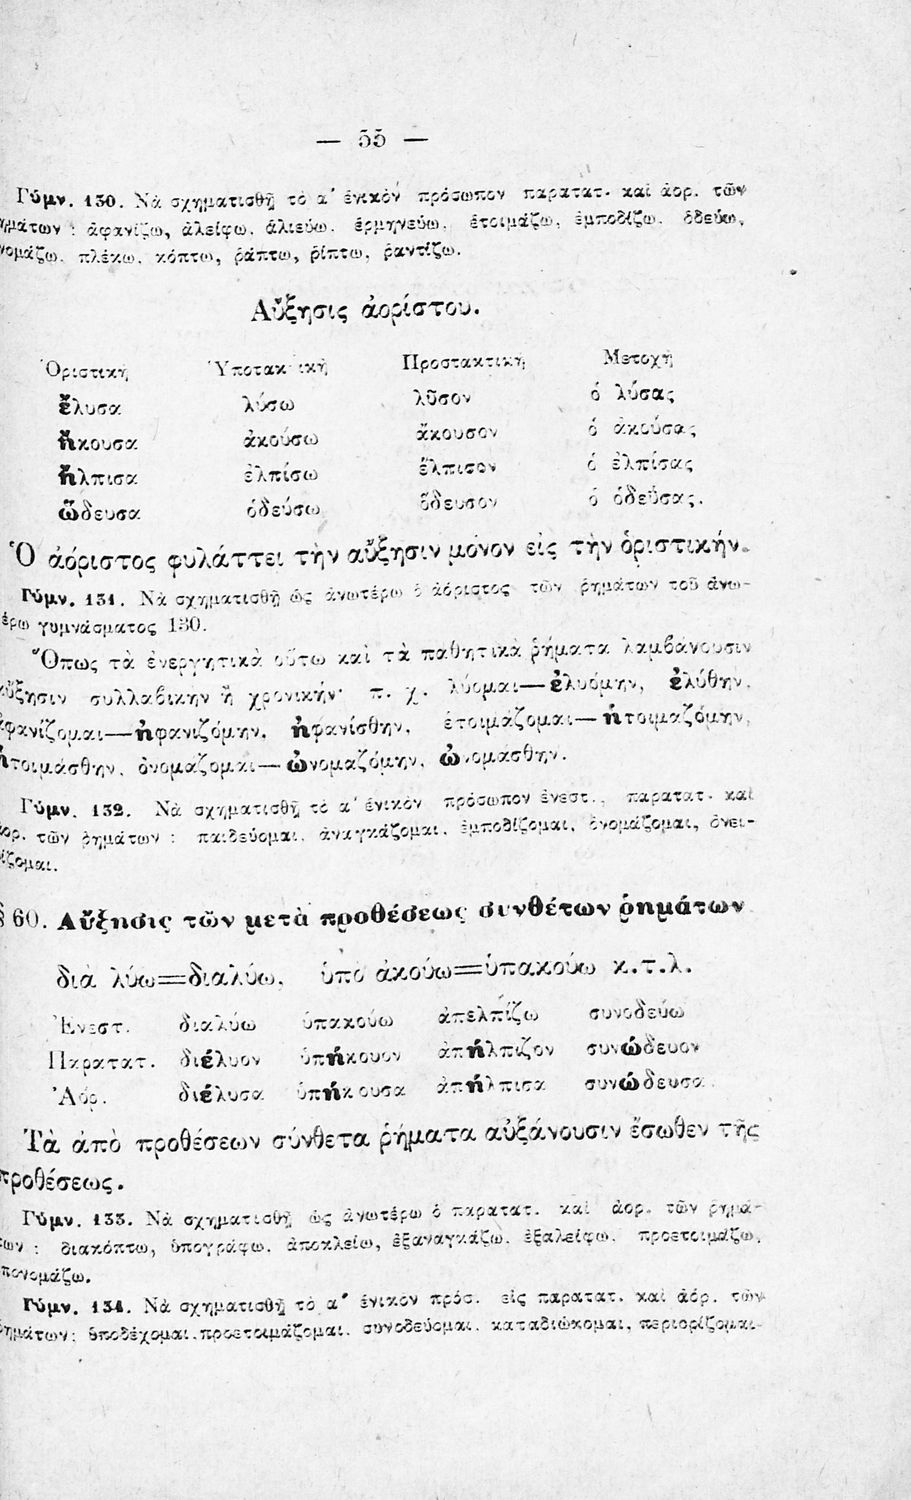 — 55 —
Γύμν. 130. Νὰ σχηματισθῇ τὸ α΄ ἑνικὸν πρόσωπον παρατατ. καὶ ἀορ. τῶν
ημάτων : ἀφανίζω, ἀλείφω, ἁλιεύω, ἑρμηνεύω, ἑτοιμάζω, ἐμποδίζω, ὁδεύω,
νομάζω, πλέκω, κόπτω, ῥάπτω, ῥίπτω, ῥαντίζω.
Αὔξησις ἀορίστου.
Ὁριστικὴ Ὑποτακτικὴ Προστακτικὴ Μετοχὴ
ἔλυσα λύσω λῦσον ὁ λύσας
ἤκουσα ἀκούσω ἄκουσον ὁ ἀκούσας
ἤλπισα ἐλπίσω ἔλπισον ὁ ἐλπίσας
ὥδευσα ὁδεύσω ὅδευσον ὁ ὁδεύσας.
Ὁ ἀόριστος φυλάττει τὴν αὔξησιν μόνον εἰς τὴν ὁριστικήν.
Γύμν. 131. Νὰ σχηματισθῇ ὡς ἀνωτέρω ὁ ἀόριστος τῶν ῥημάτων τοῦ ἀνω-
έρω γυμνάσματος 130.
Ὅπως τὰ ἐνεργητικὰ οὕτω καὶ τὰ παθητικὰ ῥήματα λαμβάνουσιν
αὔξησιν συλλαβικὴν ἢ χρονικήν· π. χ. λύομαι—ἐλυόμην, ἐλύθην,
ἀφανίζομαι—ἠφανιζόμην, ἠφανίσθην, ἑτοιμάζομαι—ἡτοιμαζόμην,
ἡτοιμάσθην, ὀνομάζομαι—ὠνομαζόμην, ὠνομάσθην.
Γύμν. 132. Νὰ σχηματισθῇ τὸ α΄ ἑνικὸν πρόσωπον ἐνεστ., παρατατ. καὶ
αορ. τῶν ῥημάτων : παιδεύομαι, ἀναγκάζομαι, ἐμποδίζομαι, ὀνομάζομαι, ὀνει-
ίζομαι.
§ 60. Αὔξησις τῶν μετὰ προθέσεως συνθέτων ῥημάτων
διὰ λύω=διαλύω, ὑπὸ ἀκούω=ὑπακούω κ.τ.λ.
Ἐνεστ. διαλύω ὑπακούω ἀπελπίζω συνοδεύω
Παρατατ. διέλυον ὑπήκουον ἀπήλπιζον συνώδευον
Ἀόρ. διέλυσα ὑπήκουσα ἀπήλπισα συνώδευσα.
Τὰ ἀπὸ προθέσεων σύνθετα ῥήματα αὐξάνουσιν ἔσωθεν τῆς
προθέσεως.
Γύμν. 133. Νὰ σχηματισθῇ ὡς ἀνωτέρω ὁ παρατατ. καὶ ἀορ. τῶν ῥημά-
των : διακόπτω, ὑπογράφω, ἀποκλείω, ἐξαναγκάζω, ἐξαλείφω, προετοιμάζω,
πονομάζω.
Γύμν. 134. Νὰ σχηματισθῇ τὸ α΄ ἑνικὸν πρόσ. εἰς παρατατ. καὶ ἀόρ. τῶν
ῥημάτων: ὑποδέχομαι, προετοιμάζομαι, συνοδεύομαι, καταδιώκομαι, περιορίζομαι